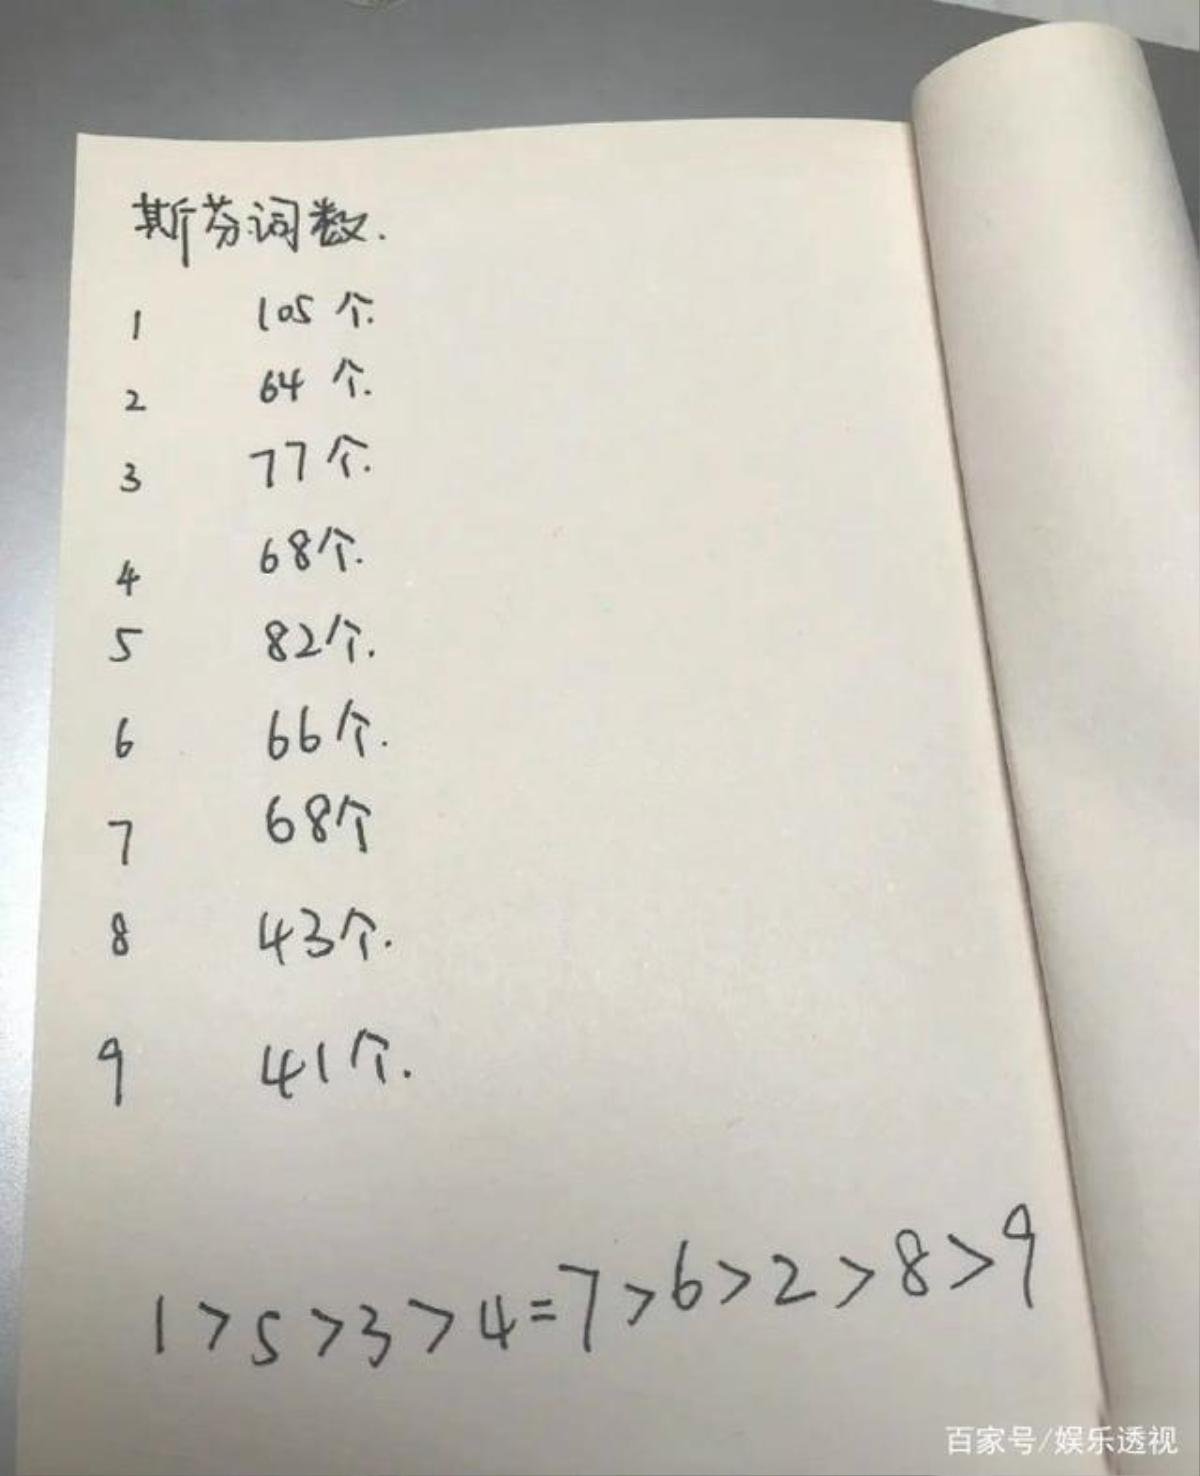 斯芬词数.
1 105个.
2 64个.
3 77个.
4 68个.
5 82个.
6 66个.
7 68个
8 43个.
9 41个.
1>5>3>4=7>6>2>8>9
百家号/娱乐透视